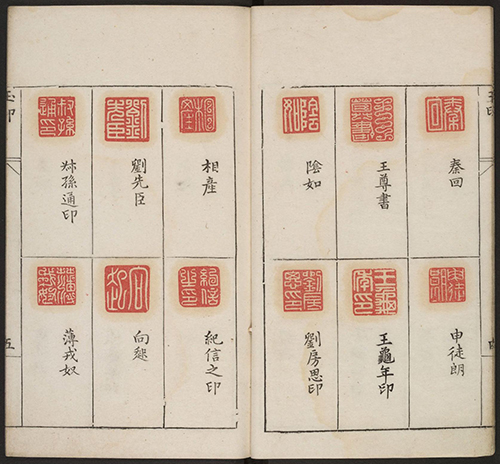 秦回
王尊書
陰如
申徒朗
王龜年印
劉房思印
相產
劉先臣
叔孫通印
紀信之印
向起
薄戎奴
玉印
五